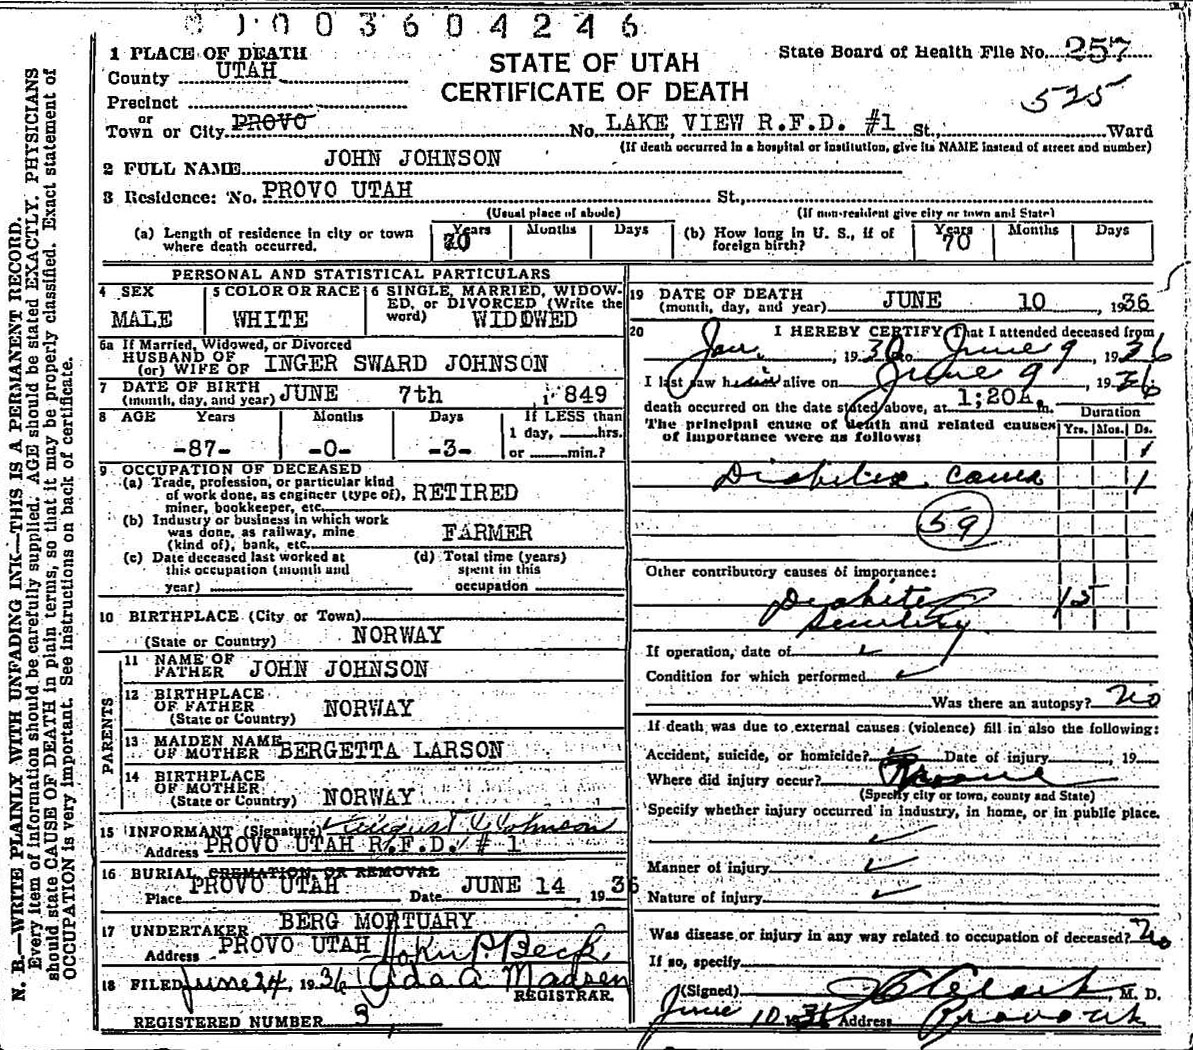 1003604246
1 PLACE OF DEATH
County UTAH
STATE OF UTAH
CERTIFICATE OF DEATH
State Board of Health File No. 257
525
Precinct
or
Town or City PROVO No. LAKE VIEW R.F.D. #1 St., Ward
(If death occurred in a hospital or institution, give its NAME instead of street and number)
2 FULL NAME JOHN JOHNSON
3 Residence: No. PROVO UTAH St.,
(Usual place of abode) (If non-resident give city or town and State)
(a) Length of residence in city or town where death occurred. Years Months Days
(b) How long in U. S., if of foreign birth? Years 70 Months Days
PERSONAL AND STATISTICAL PARTICULARS
4 SEX MALE
5 COLOR OR RACE WHITE
6 SINGLE, MARRIED, WIDOWED, or DIVORCED (Write the word) WIDOWED
6a If Married, Widowed, or Divorced
HUSBAND OF
(or) WIFE OF INGER SWARD JOHNSON
7 DATE OF BIRTH
(month, day, and year) JUNE 7th 1849
8 AGE Years Months Days If LESS than
1 day, hrs.
or min.?
-87- -0- -3-
9 OCCUPATION OF DECEASED
(a) Trade, profession, or particular kind
of work done, as engineer (type of),
miner, bookkeeper, etc. RETIRED
(b) Industry or business in which work
was done, as railway, mine
(kind of), bank, etc. FARMER
(c) Date deceased last worked at
this occupation (month and
year)
(d) Total time (years)
spent in this
occupation
10 BIRTHPLACE (City or Town)
(State or Country) NORWAY
PARENTS
11 NAME OF
FATHER JOHN JOHNSON
12 BIRTHPLACE
OF FATHER
(State or Country) NORWAY
13 MAIDEN NAME
OF MOTHER BERGETTA LARSON
14 BIRTHPLACE
OF MOTHER
(State or Country) NORWAY
15 INFORMANT (Signature) August Johnson
Address PROVO UTAH R.F.D. # 1
16 BURIAL CREMATION, OR REMOVAL
Place PROVO UTAH Date JUNE 14, 1936
17 UNDERTAKER BERG MORTUARY
Address PROVO UTAH John P. Beck
18 FILED June 24, 1936 Ada A Madsen
REGISTRAR
REGISTERED NUMBER 3
19 DATE OF DEATH
(month, day, and year) JUNE 10, 1936
20 I HEREBY CERTIFY That I attended deceased from
Jan., 1930 to June 9, 1936
I last saw him alive on June 9, 1936
death occurred on the date stated above, at 1;20A. m.
The principal cause of death and related causes
of importance were as follows:
Duration
Yrs. Mos. Ds.
1
Diabetic coma 1
59
Other contributory causes of importance:
Diabetes 15
Senility
If operation, date of
Condition for which performed
Was there an autopsy? No
If death was due to external causes (violence) fill in also the following:
Accident, suicide, or homicide? Date of injury, 19
Where did injury occur?
(Specify city or town, county and State)
Specify whether injury occurred in industry, in home, or in public place.
Manner of injury
Nature of injury
Was disease or injury in any way related to occupation of deceased? No
If so, specify
(Signed) Clark, M. D.
June 10 1936 Address Provo Ut
N. B.—WRITE PLAINLY WITH UNFADING INK—THIS IS A PERMANENT RECORD.
Every item of information should be carefully supplied. AGE should be stated EXACTLY. PHYSICIANS
should state CAUSE OF DEATH in plain terms, so that it may be properly classified. Exact statement of
OCCUPATION is very important. See instructions on back of certificate.